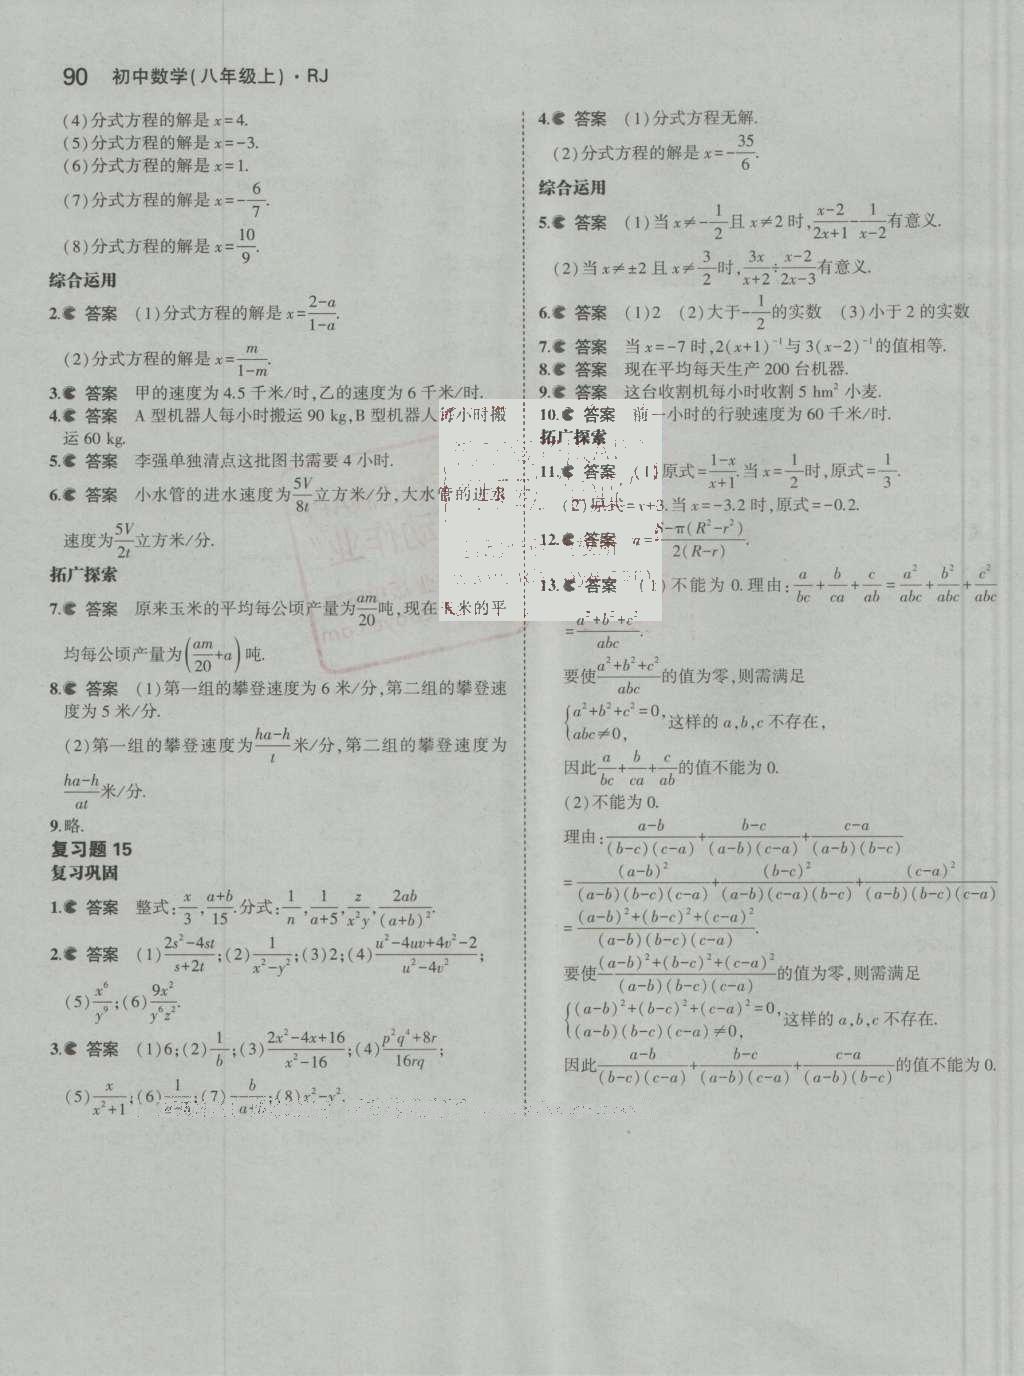 90 初中数学(八年级上)·RJ
(4)分式方程的解是 x=4.
(5)分式方程的解是 x=-3.
(6)分式方程的解是 x=1.
(7)分式方程的解是 x=-6/7.
(8)分式方程的解是 x=10/9.
综合运用
2. 答案 (1)分式方程的解是 x=(2-a)/(1-a).
(2)分式方程的解是 x=m/(1-m).
3. 答案 甲的速度为 4.5 千米/时,乙的速度为 6 千米/时.
4. 答案 A 型机器人每小时搬运 90 kg,B 型机器人每小时搬
运 60 kg.
5. 答案 李强单独清点这批图书需要 4 小时.
6. 答案 小水管的进水速度为5V/8t立方米/分,大水管的进水
速度为5V/2t立方米/分.
拓广探索
7. 答案 原来玉米的平均每公顷产量为am/20吨,现在玉米的平
均每公顷产量为(am/20+a)吨.
8. 答案 (1)第一组的攀登速度为 6 米/分,第二组的攀登速
度为 5 米/分.
(2)第一组的攀登速度为(ha-h)/t米/分,第二组的攀登速度为
(ha-h)/at米/分.
9.略.
复习题 15
复习巩固
1. 答案 整式:x/3,(a+b)/15.分式:1/n,1/(a+5),z/(x²y),2ab/(a+b)².
2. 答案 (1)(2s²-4st)/(s+2t);(2)1/(x²-y²);(3)2;(4)(u²-4uv+4v²-2)/(u²-4v²);
(5)x⁶/y⁹;(6)9x²/(y⁶z²).
3. 答案 (1)6;(2)1/b;(3)(2x²-4x+16)/(x²-16);(4)(p²q⁴+8r)/16rq;
(5)x/(x²+1);(6)1/;(7)-b/;(8)x²-y².
4. 答案 (1)分式方程无解.
(2)分式方程的解是 x=-35/6.
综合运用
5. 答案 (1)当 x≠-1/2且 x≠2 时,(x-2)/(2x+1)-1/(x-2)有意义.
(2)当 x≠±2 且 x≠3/2时,3x/(x+2)÷(x-2)/(2x-3)有意义.
6. 答案 (1)2 (2)大于-1/2的实数 (3)小于 2 的实数
7. 答案 当 x=-7 时,2(x+1)⁻¹与 3(x-2)⁻¹的值相等.
8. 答案 现在平均每天生产 200 台机器.
9. 答案 这台收割机每小时收割 5 hm² 小麦.
10. 答案 前一小时的行驶速度为 60 千米/时.
拓广探索
11. 答案 (1)原式=(1-x)/(x+1).当 x=1/2时,原式=1/3.
(2)原式=x+3.当 x=-3.2 时,原式=-0.2.
12. 答案 a=(S-π(R²-r²))/(2(R-r)).
13. 答案 (1)不能为 0.理由:a/bc+b/ca+c/ab=a²/abc+b²/abc+c²/abc
=(a²+b²+c²)/abc.
要使(a²+b²+c²)/abc的值为零,则需满足
{a²+b²+c²=0,
abc≠0, 这样的 a,b,c 不存在,
因此a/bc+b/ca+c/ab的值不能为 0.
(2)不能为 0.
理由:(a-b)/((b-c)(c-a))+(b-c)/((a-b)(c-a))+(c-a)/((a-b)(b-c))
=(a-b)²/((a-b)(b-c)(c-a))+(b-c)²/((a-b)(c-a)(b-c))+(c-a)²/((a-b)(b-c)(c-a))
=((a-b)²+(b-c)²+(c-a)²)/((a-b)(b-c)(c-a)).
要使((a-b)²+(b-c)²+(c-a)²)/((a-b)(b-c)(c-a))的值为零,则需满足
{(a-b)²+(b-c)²+(c-a)²=0,
(a-b)(b-c)(c-a)≠0, 这样的 a,b,c 不存在.
因此(a-b)/((b-c)(c-a))+(b-c)/((a-b)(c-a))+(c-a)/((a-b)(b-c))的值不能为 0.